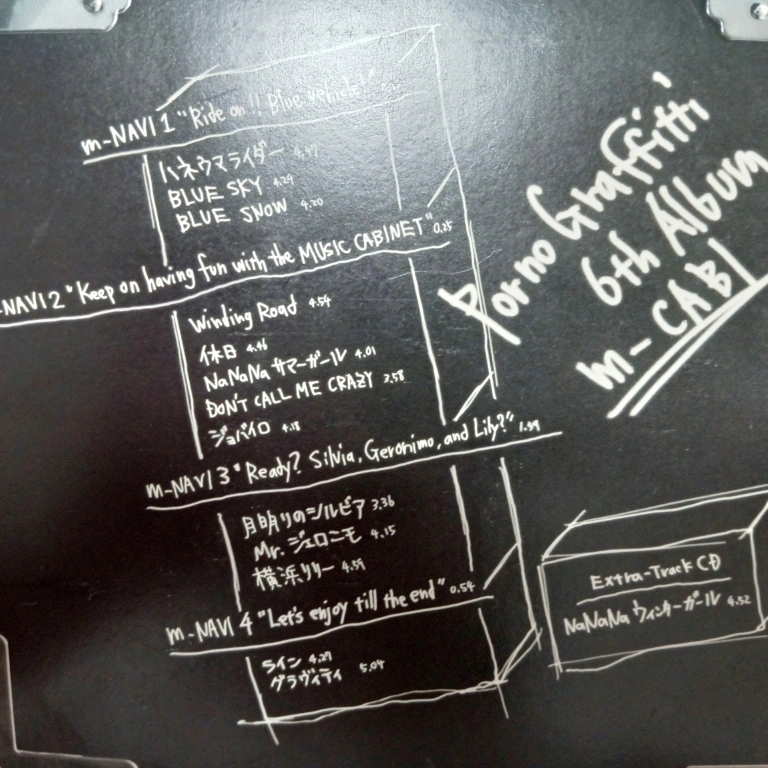 m-NAVI 1 "Ride on!! Blue vehicle!"
ハネウマライダー 4.47
BLUE SKY 4.29
BLUE SNOW 4.20
-NAVI 2 "Keep on having fun with the MUSIC CABINET" 0.25
Winding Road 4.54
休日 4.46
NaNaNa サマーガール 4.01
DON'T CALL ME CRAZY 3.58
ジョバイロ 4.18
m-NAVI 3 "Ready? Silvia, Geronimo, and Lily?" 1.39
月明りのシルビア 3.36
Mr. ジェロニモ 4.15
横浜リリー 4.59
m-NAVI 4 "Let's enjoy till the end" 0.54
ライン 4.29
グラヴィティ 5.04
Porno Graffitti
6th Album
m-CABI
Extra-Track CD
NaNaNa ウィンターガール 4.52